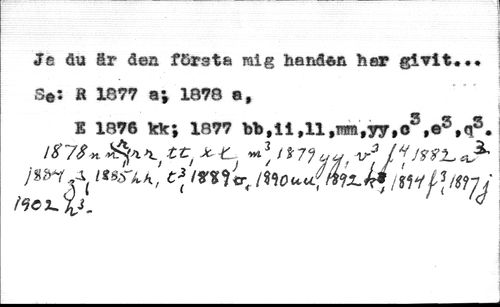 Ja du är den första mig handen har givit...
Se: R 1877 a; 1878 a,
E 1876 kk; 1877 bb,ii,ll,mm,yy,c³,e³,q³.
1878 nn, rr, tt, xx, m³, 1879 yy, v³, f⁴, 1882 a³
1884 z³, 1885 hh, t³, 1889 o, 1890 uu, 1892 k³, 1894 f³, 1897 j
1902 h³.